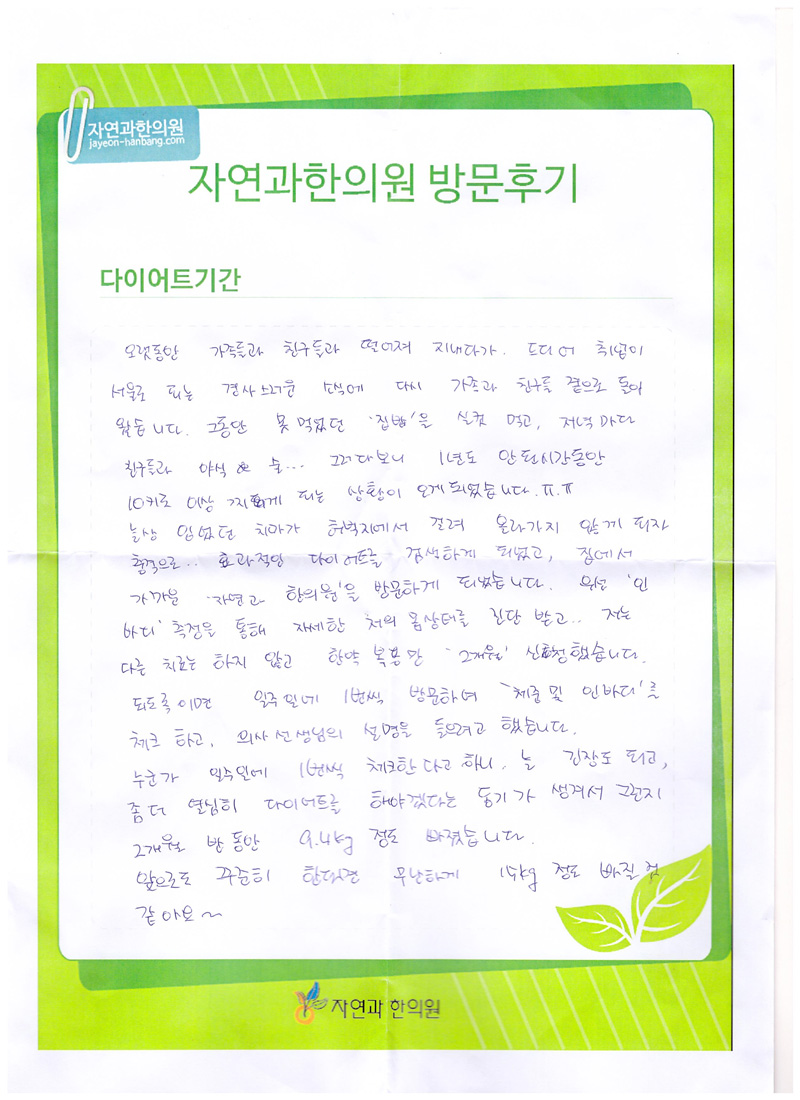 자연과한의원
jayeon-hanbang.com
자연과한의원 방문후기
다이어트기간
오랫동안 가족들과 친구들과 떨어져 지내다가. 드디어 취업이
서울로 되는 경사스러운 소식에 다시 가족과 친구들 곁으로 돌아
왔습니다. 그동안 못 먹었던 '집밥'을 실컷 먹고, 저녁마다
친구들과 야식 & 술... 그러다보니 1년도 안된시간동안
10키로 이상 찌게 되는 상황이 오게되었습니다.ㅠ.ㅠ
늘상 입었던 치마가 허벅지에서 걸려 올라가지 않게 되자
충격으로.. 효과적인 다이어트를 검색하게 되었고, 집에서
가까운 '자연과 한의원'을 방문하게 되었습니다. 우선 '인
바디' 측정을 통해 자세한 저의 몸상태를 진단 받고.. 저는
다른 치료는 하지 않고 한약 복용만 '2개월' 신청했습니다.
되도록이면 일주일에 1번씩 방문하여 '체중 및 인바디'를
체크 하고, 의사선생님의 설명을 들으려고 했습니다.
누군가 일주일에 1번씩 체크한다고 하니, 늘 긴장도 되고,
좀더 열심히 다이어트를 해야겠다는 동기가 생겨서 그런지
2개월 반 동안 9.4kg 정도 빠졌습니다.
앞으로도 꾸준히 한다면 무난하게 15kg 정도 빠질 것
같아요~
자연과 한의원